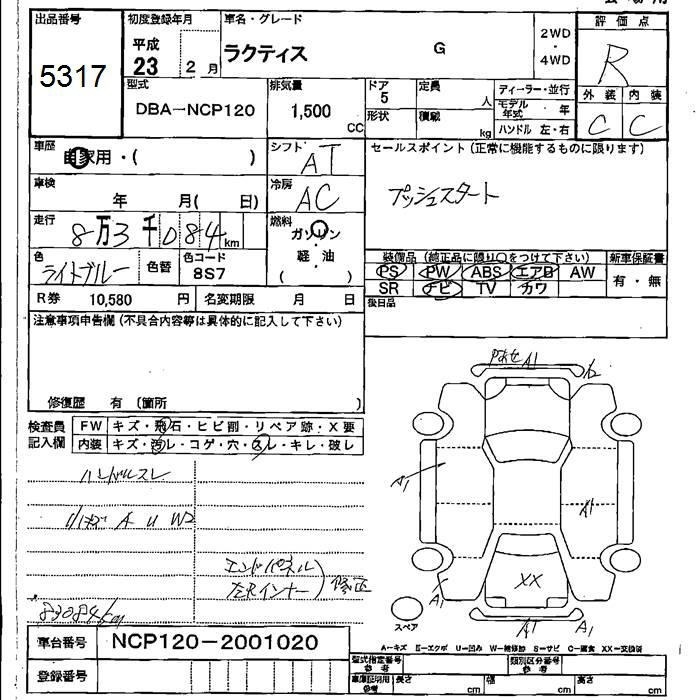 出品番号
5317
初度登録年月
平成
23 2 月
車名・グレード
ラクティス G
2WD
・
4WD
評価点
R
型式
DBA-NCP120
排気量
1,500
CC
ドア
5
形状
定員
人
積載
kg
ディーラー・並行
モデル年式 年
ハンドル 左・右
外装 内装
C C
車歴
自家用・( )
シフト
AT
セールスポイント(正常に機能するものに限ります)
プッシュスタート
車検
年 月( 日)
冷房
AC
走行
8万3千084km
燃料
ガソリン
・
軽油
( )
色
ライトブルー
色替
色コード
8S7
装備品(純正品に限り○をつけて下さい)
PS PW ABS エアB AW
SR ナビ TV カワ
新車保証書
有・無
R券 10,580 円
名変期限 月 日
後日品
注意事項申告欄(不具合内容等は具体的に記入して下さい)
修復歴 有 (箇所 )
検査員
記入欄
FW キズ・飛石・ヒビ割・リペア跡・X要
内装 キズ・汚レ・コゲ・穴・スレ・キレ・破レ
ハンドルスレ
小キズ A U W2
エンドパネル
左Rインナー)修正
83084km
A1
A1
A1
A1
XX
A1
A1
スペア
A-キズ E-エクボ U-凹み W-補修跡 S-サビ C-腐食 XX-交換済
車台番号
NCP120-2001020
登録番号
型式指定番号
参考
類別区分番号
参考
車庫証明用
参考
長さ cm
幅 cm
高さ cm